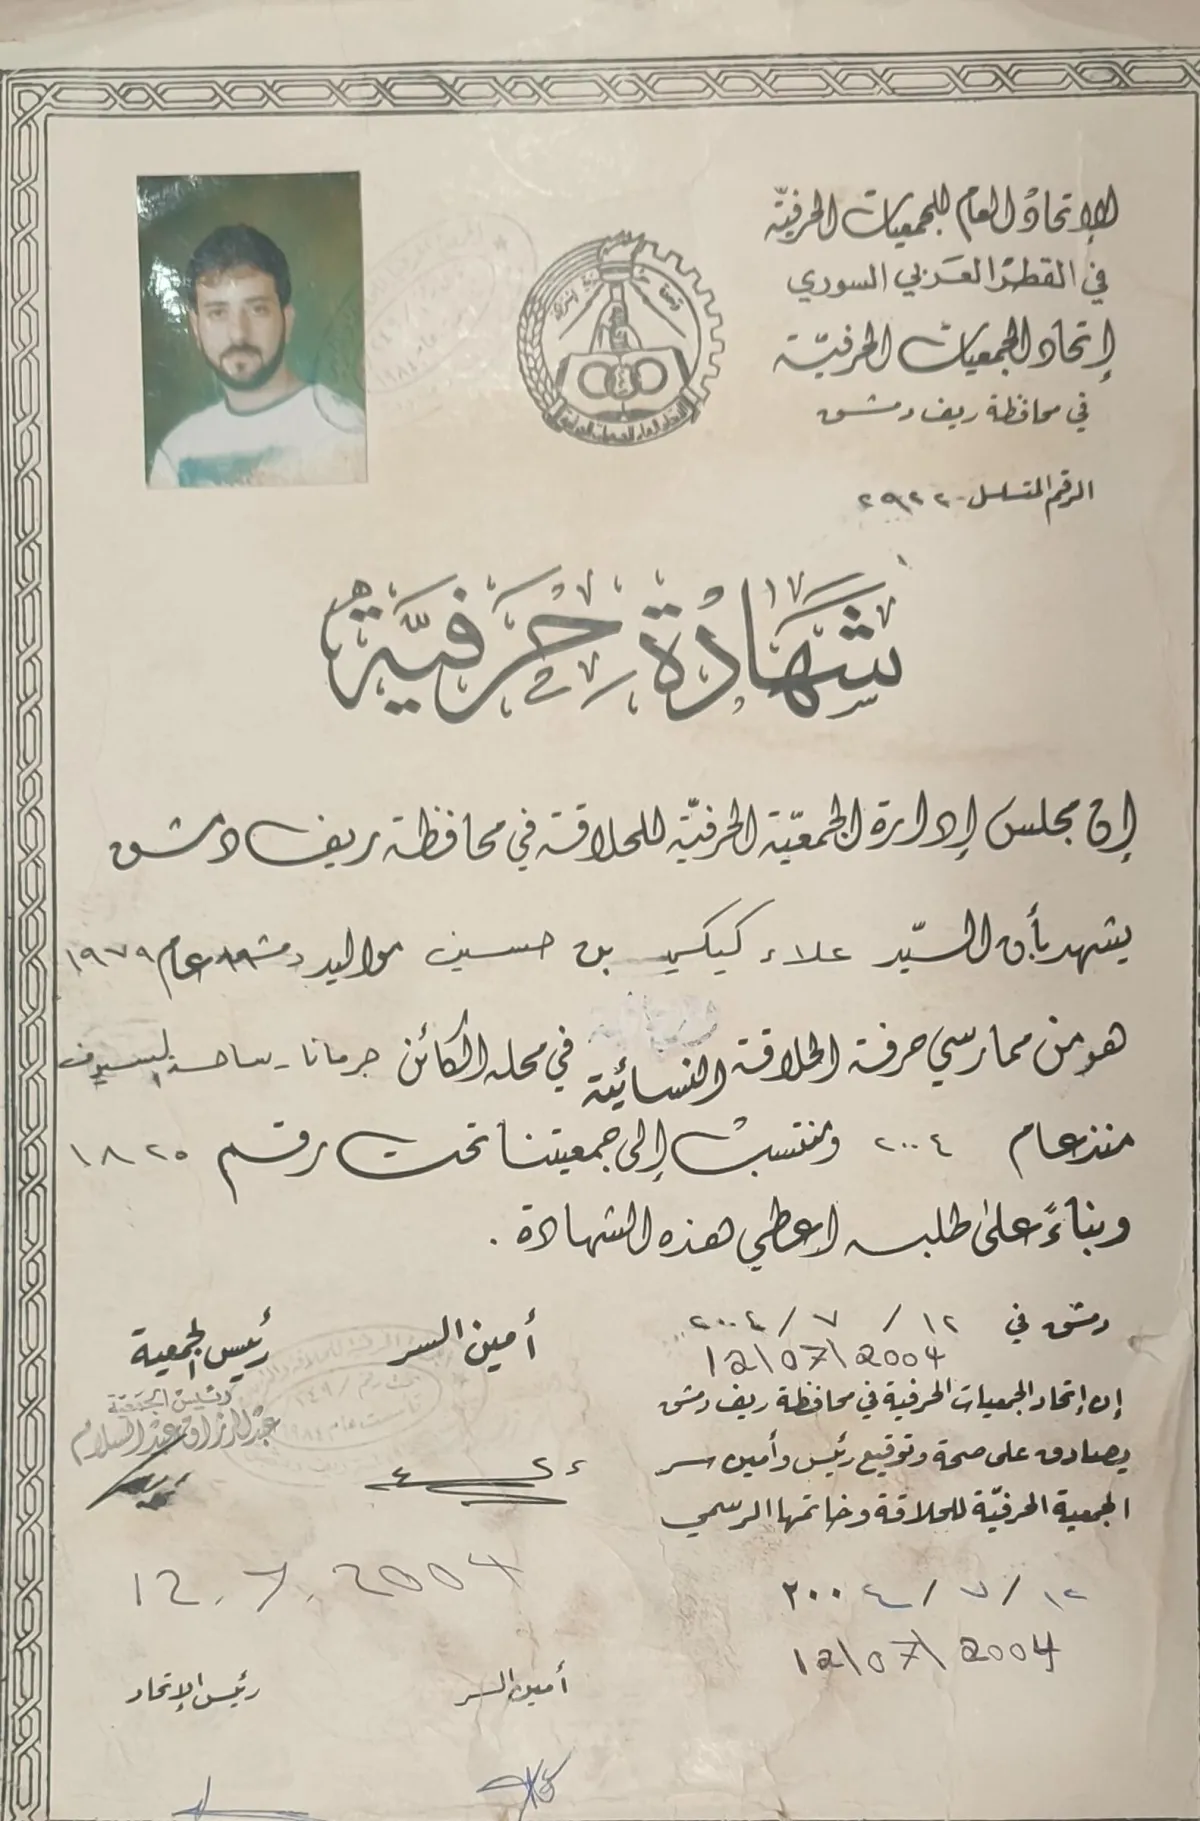 الإتحاد العام للجمعيات الحرفيّة
في القطر العربي السوري
إتحاد الجمعيات الحرفيّة
في محافظة ريف دمشق
الرقم المتسلسل - ٢٩٢٢
شَهَادَة حِرَفيَّة
إن مجلس إدارة الجمعيّة الحرفيّة للحلاقة في محافظة ريف دمشق
يشهد بأن السيّد علاء كيكي بن حسين مواليد دمشق عام ١٩٧٩
هو من ممارسي حرفة الحلاقة النسائية في محله الكائن جرمانا - ساحة السيوف
منذ عام ٢٠٠٤ ومنتسب إلى جمعيتنا تحت رقم ١٨٢٥
وبناءً على طلبه اعطي هذه الشهادة .
دمشق في ١٢ / ٧ / ٢٠٠٤
12\07\2004
أمين السر
رئيس الجمعية
رئيس الجمعية
عبد الرزاق عبد السلام
إن إتحاد الجمعيات الحرفية في محافظة ريف دمشق
يصادق على صحة وتوقيع رئيس وأمين سر
الجمعية الحرفيّة للحلاقة وخاتمها الرسمي
12.7.2004
١٢ / ٧ / ٢٠٠٤
12\07\2004
أمين السر
رئيس الإتحاد